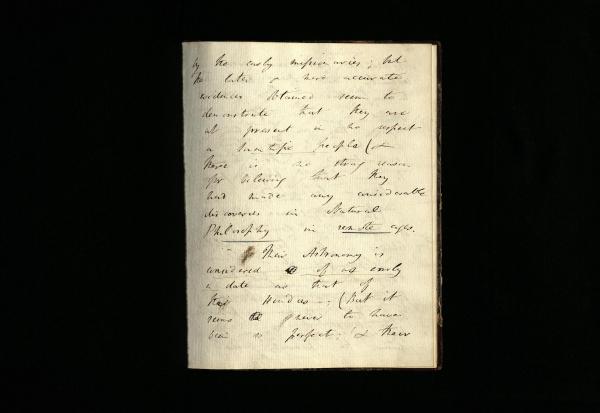 by the early missionaries; but
the later & more accurate
evidences obtained seem to
demonstrate that they are
at present in no respect
a scientific people (&
there is no strong reason
for believing that they
had made any considerable
discoveries in Natural
Philosophy in remote ages.
- Their Astronomy is
considered of as early
a date as that of
the Hindus -; (But it
seems never to have
been so perfect; & their